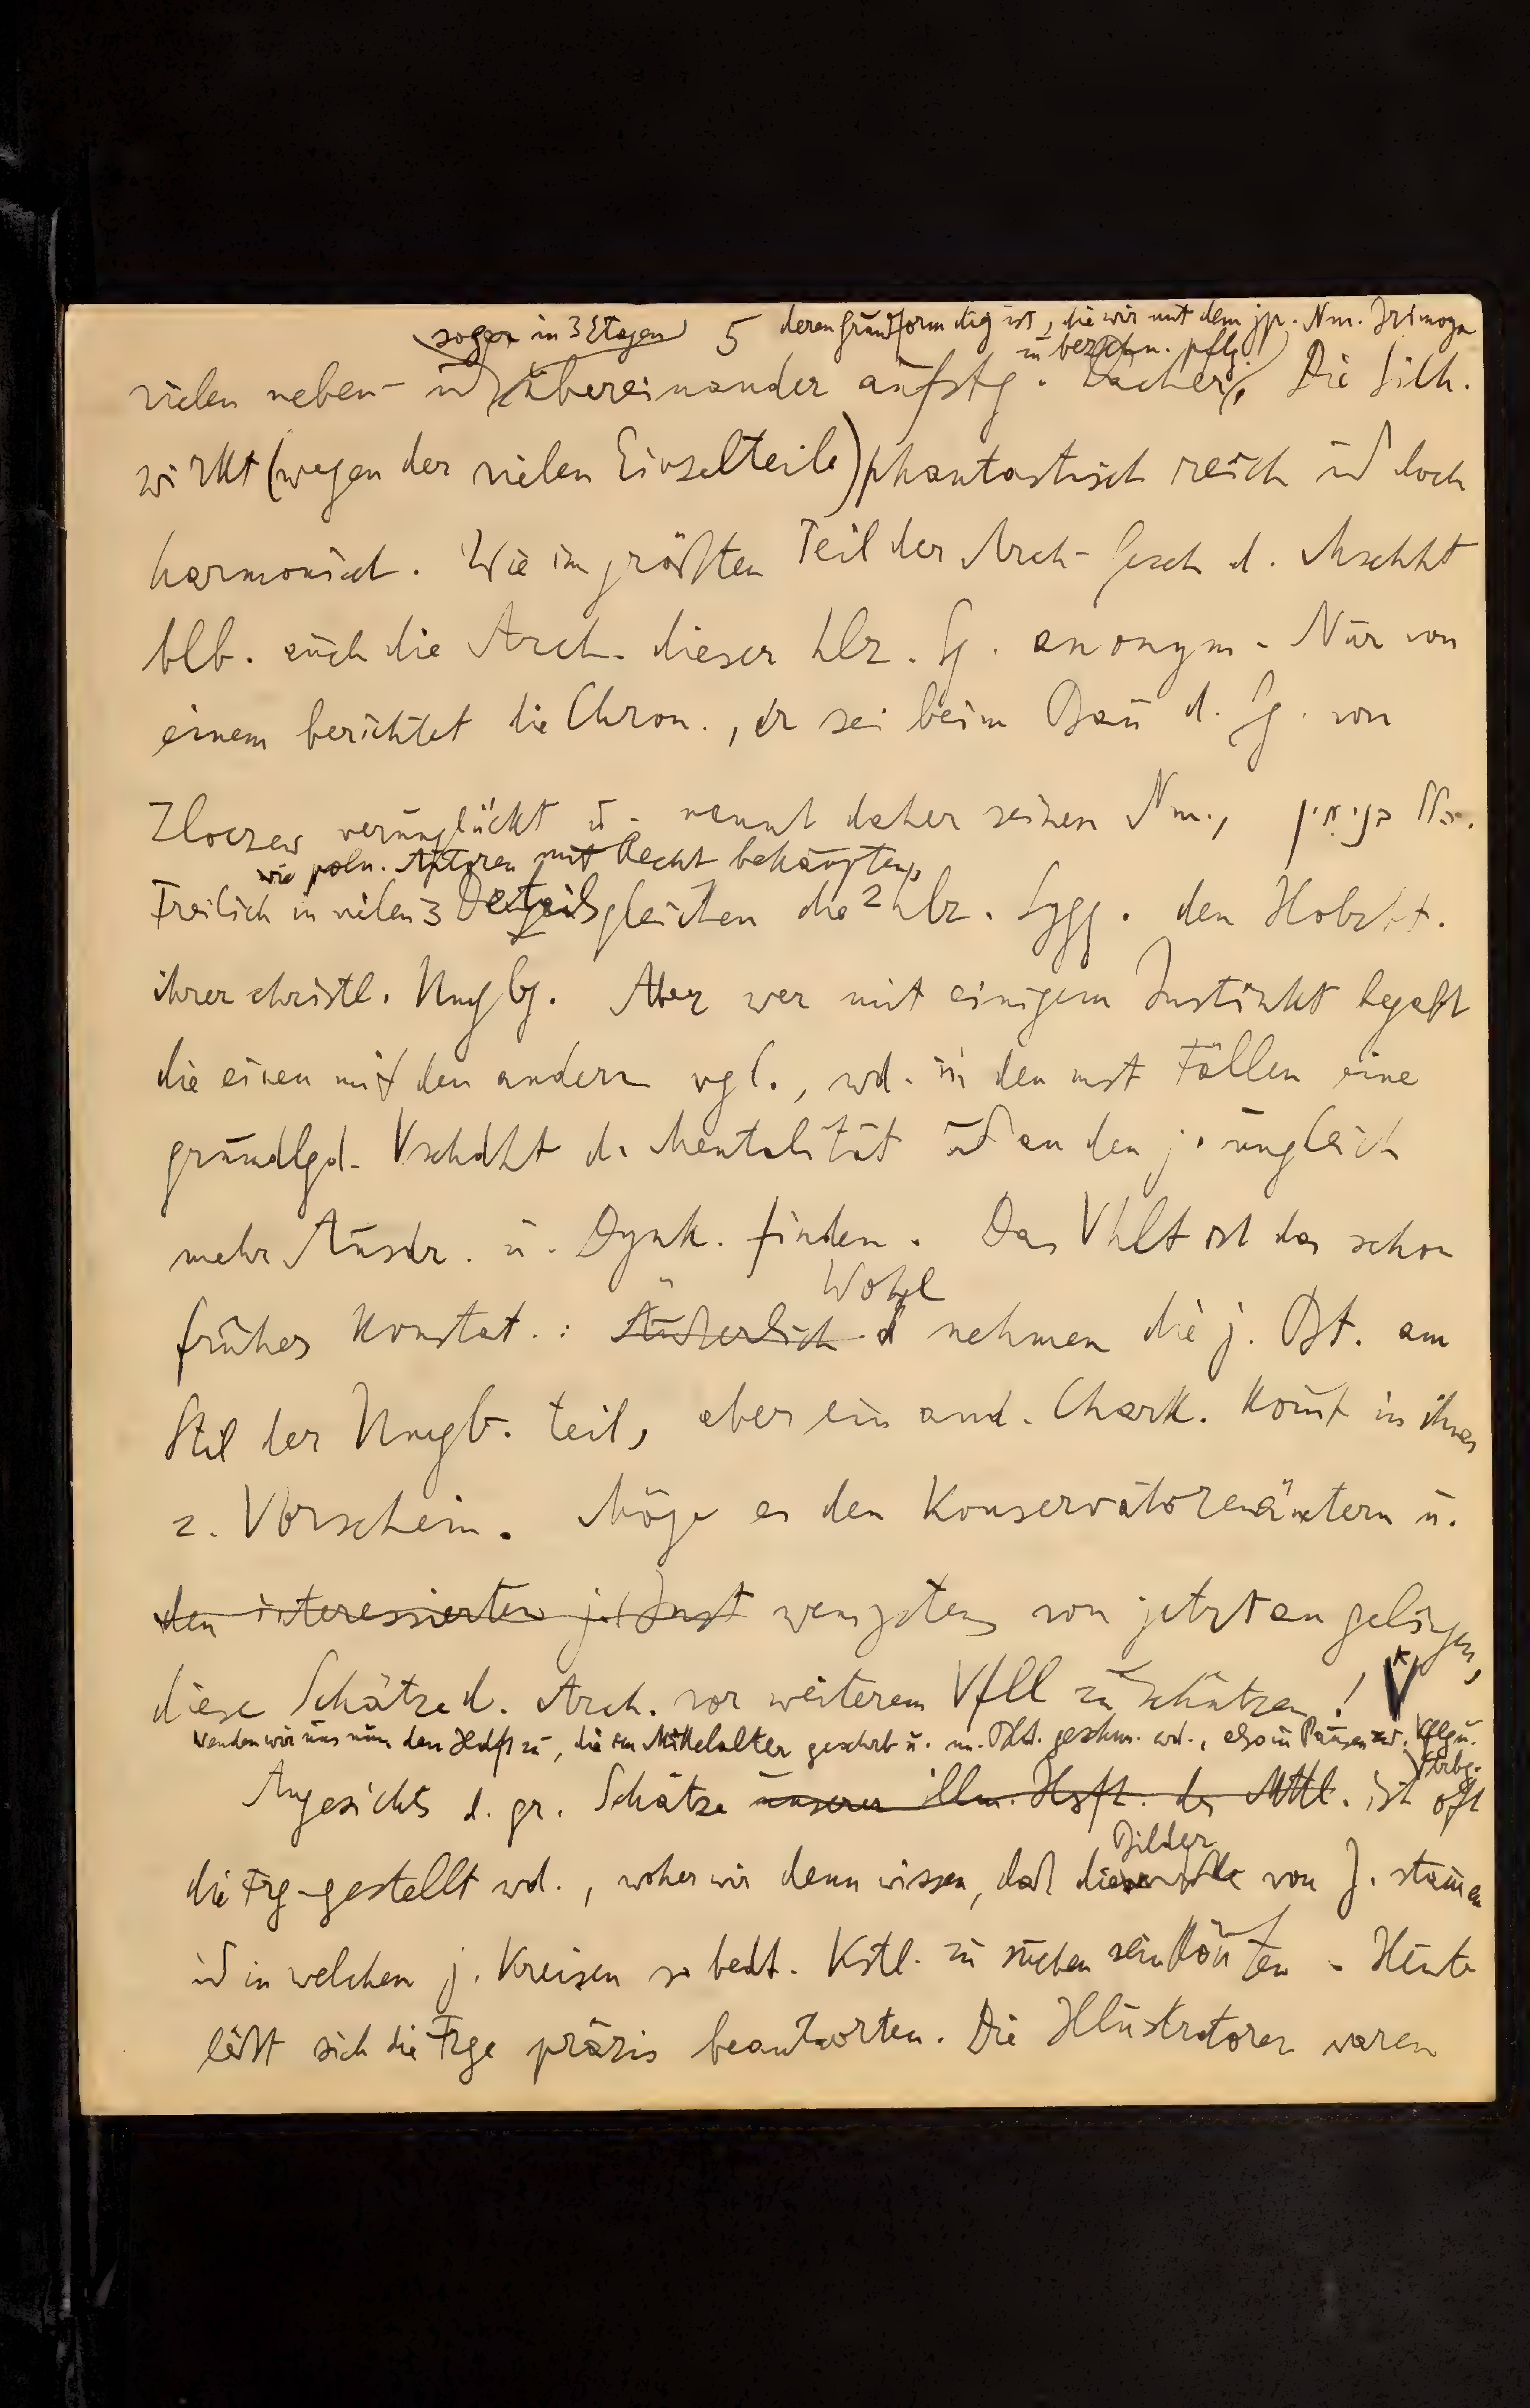 sogar in 3 Etagen 5 deren Grundform dig ist, die wir mit dem jp. Nm. Irimoya
zu bezchn. pflg.
vielen neben- ud übereinander aufstg. Dächer, Die Silh.
wirkt (wegen der vielen Einzelteile) phantastisch reich ud doch
harmonisch. Wie im größten Teil der Arch-Gesch d. Mschht
blb. auch die Arch. dieser hlz. Sg. anonym. Nur von
einem berichtet die Chron., er sei beim Bau d. Sg. von
Zloczew verunglückt u. nennt daher seinen Nm.,
wie poln. Autoren mit Recht behaupten,
Freilich in vielen Details gleichen die hlz. Sygg. den Holzkt.
ihrer christl. Umgbg. Aber wer mit einigem Instinkt begabt
die einen mit den andern vgl., wd. in den mst Fällen eine
grundlgd. Vschdht d. Mentalität ud an den j. ungleich
mehr Ausdr. u. Dynk. finden. Das Vhlt ist das schon
Wohl
früher konstat.: Äußerlich nehmen die j. Bt. am
Stil der Umgb. teil, aber ein and. Chark. komt in ihnen
z. Vorschein. Möge es den Konservatorenämtern u.
den interessierten j. Inst wenigstens von jetzt an gelingen,
diese Schätze d. Arch. vor weiterem Vfll zu schützen! V
Wenden wir uns nun den Hdsft zu, die im Mittelalter geschrb u. m. Bld. geschm. wd., also in Pausen zw. Vflg u.
Vtrbg.
Angesichts d. gr. Schätze unserer illm. Hsft. des Mttl. ist oft
Bilder
die Frg gestellt wd., woher wir denn wissen, daß diese von J. stamen
ud in welchen j. Kreisen so bedt. Kstl. zu suchen sein könten. Heute
läßt sich die Frge präzis beantworten. Die Illustratoren waren